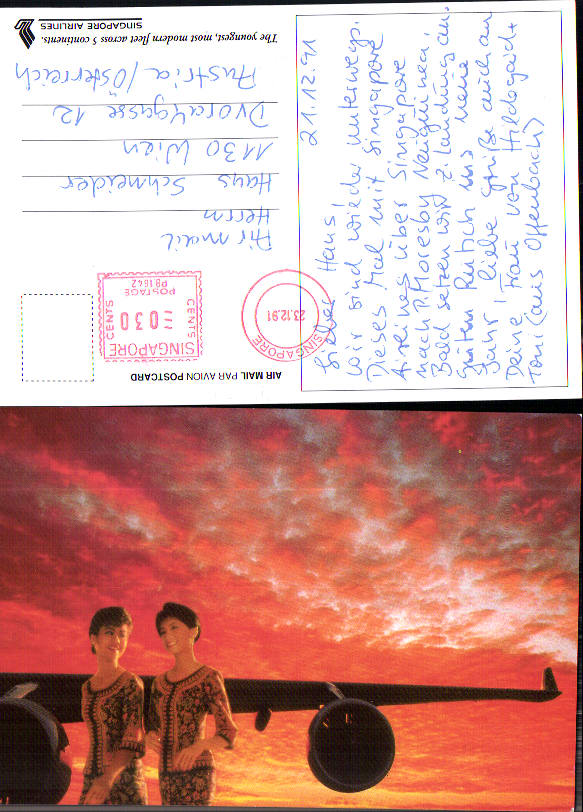 AIR MAIL PAR AVION POSTCARD
SINGAPORE
CENTS 030 CENTS
POSTAGE
PB1642
23.12.91
SINGAPORE
Air mail
Herrn
Hans Schneider
1130 Wien
Dvorakgasse 12
Austria/Österreich
The youngest, most modern fleet across 5 continents.
SINGAPORE AIRLINES
21.12.91
Lieber Hans!
Wir sind wieder unterwegs.
Dieses Mal mit Singapore
Airlines über Singapore
nach P. Moresby Neuguinea.
Bald setzen wir z Landung an.
Guten Rutsch ins neue
Jahr! liebe Grüße auch an
Deine Frau von Hildegard+
Toni (aus Offenbach)